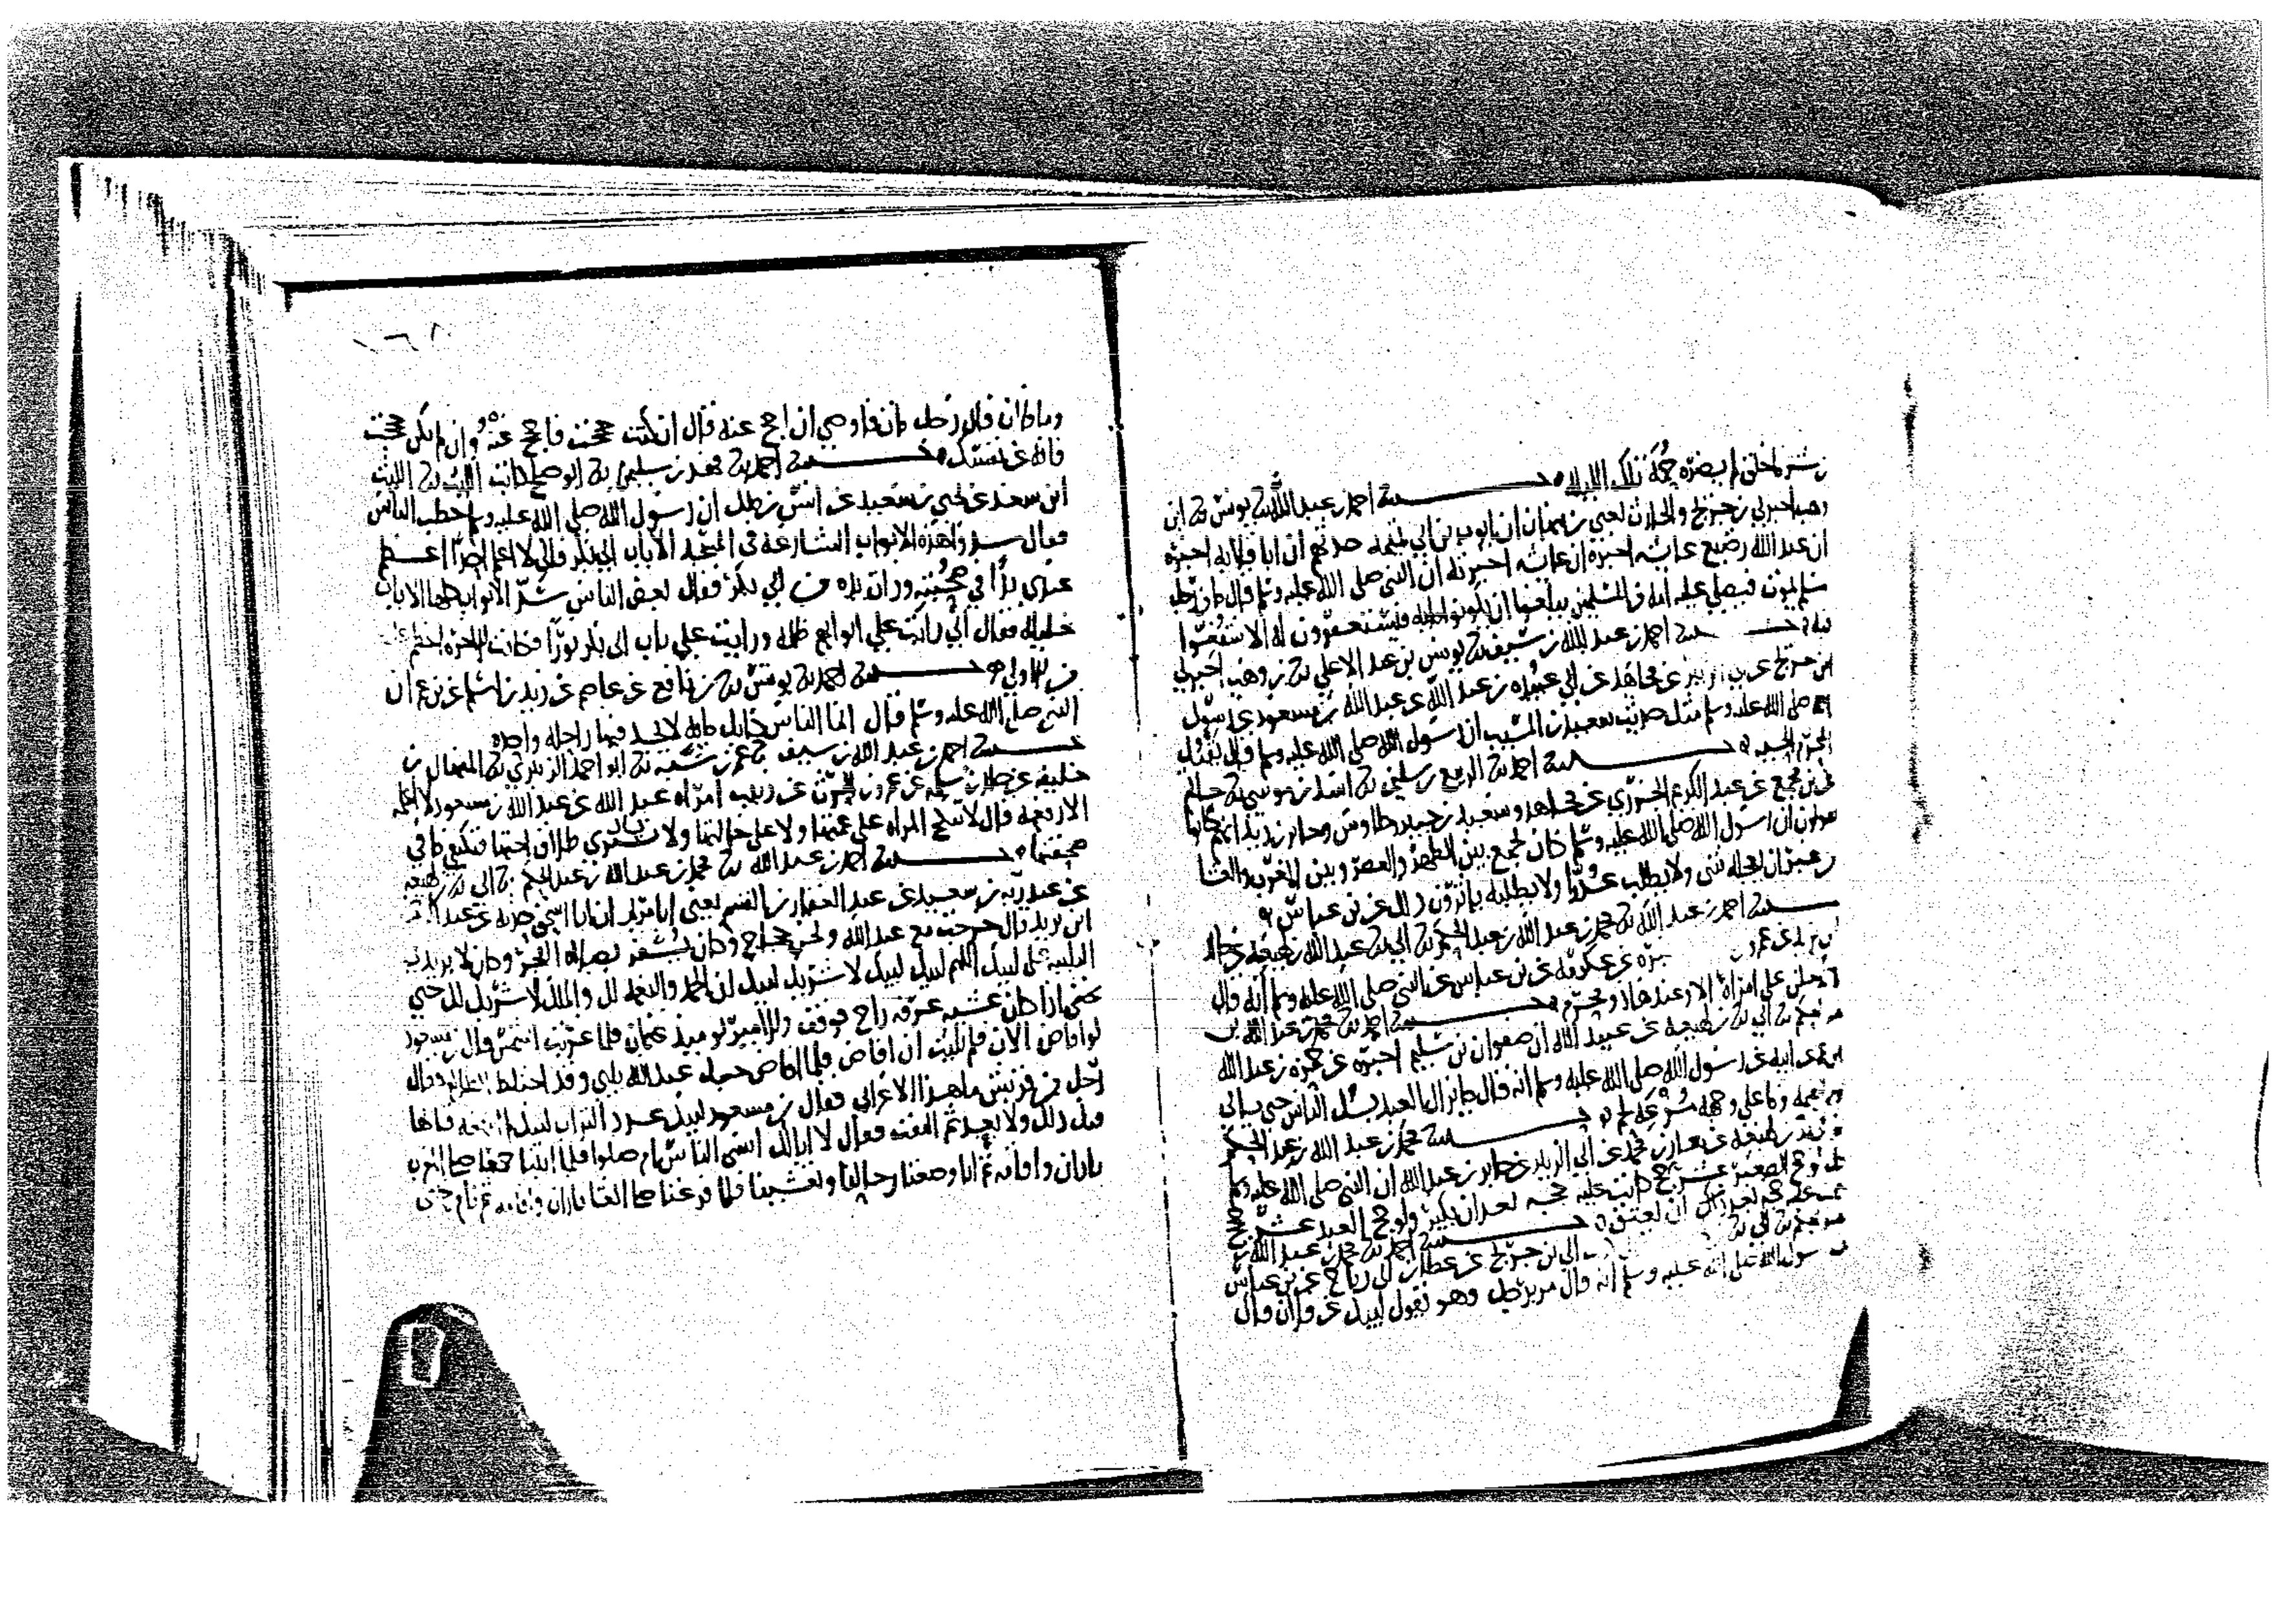 من شر ما خلق لم يضره حمة تلك الليلة
حدثنا احمد بن عبد الله نا يونس نا ابن
وهب اخبرني بن جريج والحارث يعني بن نبهان ان ايوب بن ابي تميمة حدثهم ان ابا قلابة اخبره
ان عبد الله رضيع عائشه اخبره ان عائشه اخبرته ان النبي صلى الله عليه وسلم قال ما من رجل
مسلم يموت فيصلي عليه امة من المسلمين يبلغوا ان يكونوا مايه فيستغفرون له الا شفعوا
فيه حدثنا احمد بن عبد الله بن سيف نا يونس بن عبد الاعلى نا بن وهب اخبرني
ابن جريج عن ابي الزبير عن مجاهد عن ابي عبيده بن عبد الله عن عبد الله بن مسعود عن رسول
الله صلى الله عليه وسلم مثل حديث سعيد بن المسيب ان رسول الله صلى الله عليه وسلم قال يقتل
المحرم الحيه حدثنا احمد نا الربيع بن سليمن نا اسد بن موسى نا حاتم
عن بن مجمع عن عبد الكريم الجزري عن مجاهد وسعيد بن جبير وطاوس وجابر بن زيد انهم كانوا
يقولون ان رسول الله صلى الله عليه وسلم كان يجمع بين الظهر والعصر وبين المغرب والعشا
من غير ان يعجله شي ولا يطلب عدوا ولا يطلبه ياثرون ذلك عن بن عباس
حدثنا احمد بن عبد الله نا محمد بن عبد الله بن عبد الحكم نا ابي نا عبد الله بن لهيعة عن خالد
بن يزيد عن عمرو عن عكرمه عن بن عباس عن النبي صلى الله عليه وسلم أنه قال
لا يدخل على امراة الا وعندها ذو محرم حدثنا احمد نا محمد بن عبد الله بن
عبد الحكم نا ابي نا بن لهيعة عن عبيد الله ان صفوان بن سليم اخبره عن حمزه بن عبد الله
ابن عمر عن ابيه عن رسول الله صلى الله عليه وسلم انه قال ما يزال بالعبد يسل الناس حتى ياتي
يوم القيمه وما على وجهه مزعة لحم حدثنا محمد بن عبد الله بن عبد الحكم
بن لهيعة عن محمد عن ابي الزبير عن جابر بن عبد الله ان النبي صلى الله عليه وسلم
قال لو حج الصغير عشر حجج كانت عليه حجه بعد ان يكبر ولو حج العبد عشر حجج
كانت عليه حجه بعد ذلك ان يعتق حدثنا احمد نا محمد بن عبد الله بن
عبد الحكم نا ابي نا ابي بن جريج عن عطا بن ابي رباح عن بن عباس
عن رسول الله صلى الله عليه وسلم انه قال مر برجل وهو يقول لبيك عن فلان قال
وما كان قال رجل مات فاوصى ان احج عنه قال ان كنت حججت فاحجج عنه وان لم تكن حججت
فانه عن نفسك حدثنا احمد نا فهد بن سليمن نا ابو صالح كاتب الليث نا الليث
ابن سعد عن يحيى بن سعيد عن انس بن مالك ان رسول الله صلى الله عليه وسلم خطب الناس
فقال سدوا هذه الابواب الشارعة في المسجد الا باب ابي بكر فاني لا اعلم امرءا اعظم
عندي يدا في صحبته وذات يده من ابي بكر فقال بعض الناس سد الابواب كلها الا باب
خليله فقال اني رايت على ابوابهم ظلمه ورايت على باب ابي بكر نورا فكانت الاخره اعظم
من الاولى حدثنا احمد نا يونس نا بن نافع عن عاصم عن زيد بن اسلم عن بن عمر ان
النبي صلى الله عليه وسلم قال انما الناس كابل مائه لا تجد فيها راحله واحده
حدثنا احمد بن عبد الله بن سيف نا عمر بن شبة نا ابو احمد الزبيري نا المنهال بن
خليفة عن خالد بن سلمه عن عمرو بن الحرث عن زينب امراة عبد الله عن عبد الله بن مسعود لا اعلمه
الا رفعه قال لا تنكح المراه على عمتها ولا على خالتها ولا تشتري طلاق اختها لتكفئ ما في
صحفتها حدثنا احمد بن عبد الله نا محمد بن عبد الله بن عبد الحكم نا ابي نا بن لهيعة
عن عبد ربه بن سعيد عن عبد الغفار بن القسم يعني ابا مريم ان ابا اسحق حدثه عن عبد الرحمن
ابن يزيد قال خرجت مع عبد الله ونحن حجاج وكان يسفر بصلاة الفجر وكان لا يزيد في
التلبية على لبيك اللهم لبيك لبيك لا شريك لك لبيك ان الحمد والنعمة لك والملك لا شريك لك حتى
حتى اذا كان عشيه عرفه راح فوقف والامير يوميذ عثمان فلما غربت الشمس قال بن مسعود
لو افاض الان فلم يلبث ان افاض فلما افاض جعل عبد الله يلبي وقد اختلط الظلام فقال
رجل من قريش ما هذا الاعرابي فقال بن مسعود لبيك عدد التراب لبيك فما سمعته قالها
قبل ذلك ولا بعد ثم التفت فقال لا ابالك انسي الناس ام ضلوا فلما اتينا جمعا صلى المغرب
باذان واقامه ثم اتانا وضعنا رحالنا وتعشينا فلما فرغنا صلى العشا باذان واقامه ثم نام حتى